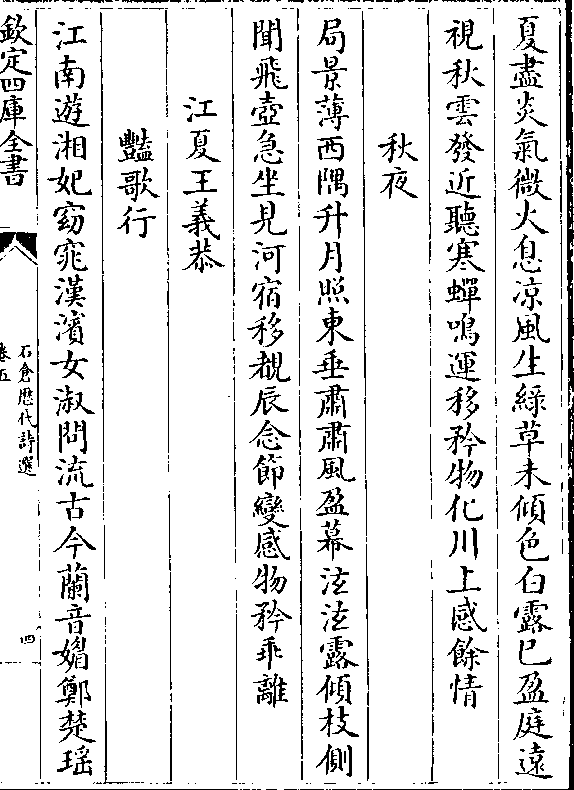 夏盡炎氣微火息凉風生綠草未傾色白露已盈庭遠
視秋雲發近聽寒蟬鳴運移矜物化川上感餘情
秋夜
局景薄西隅升月照東垂肅肅風盈幕泫泫露傾枝側
聞飛壺急坐見河宿移覩辰念節變感物矜乖離
江夏王義恭
豔歌行
江南遊湘妃窈窕漢濱女淑問流古今蘭音媚鄭楚瑶
欽定四庫全書
石倉歴代詩選
卷五
四